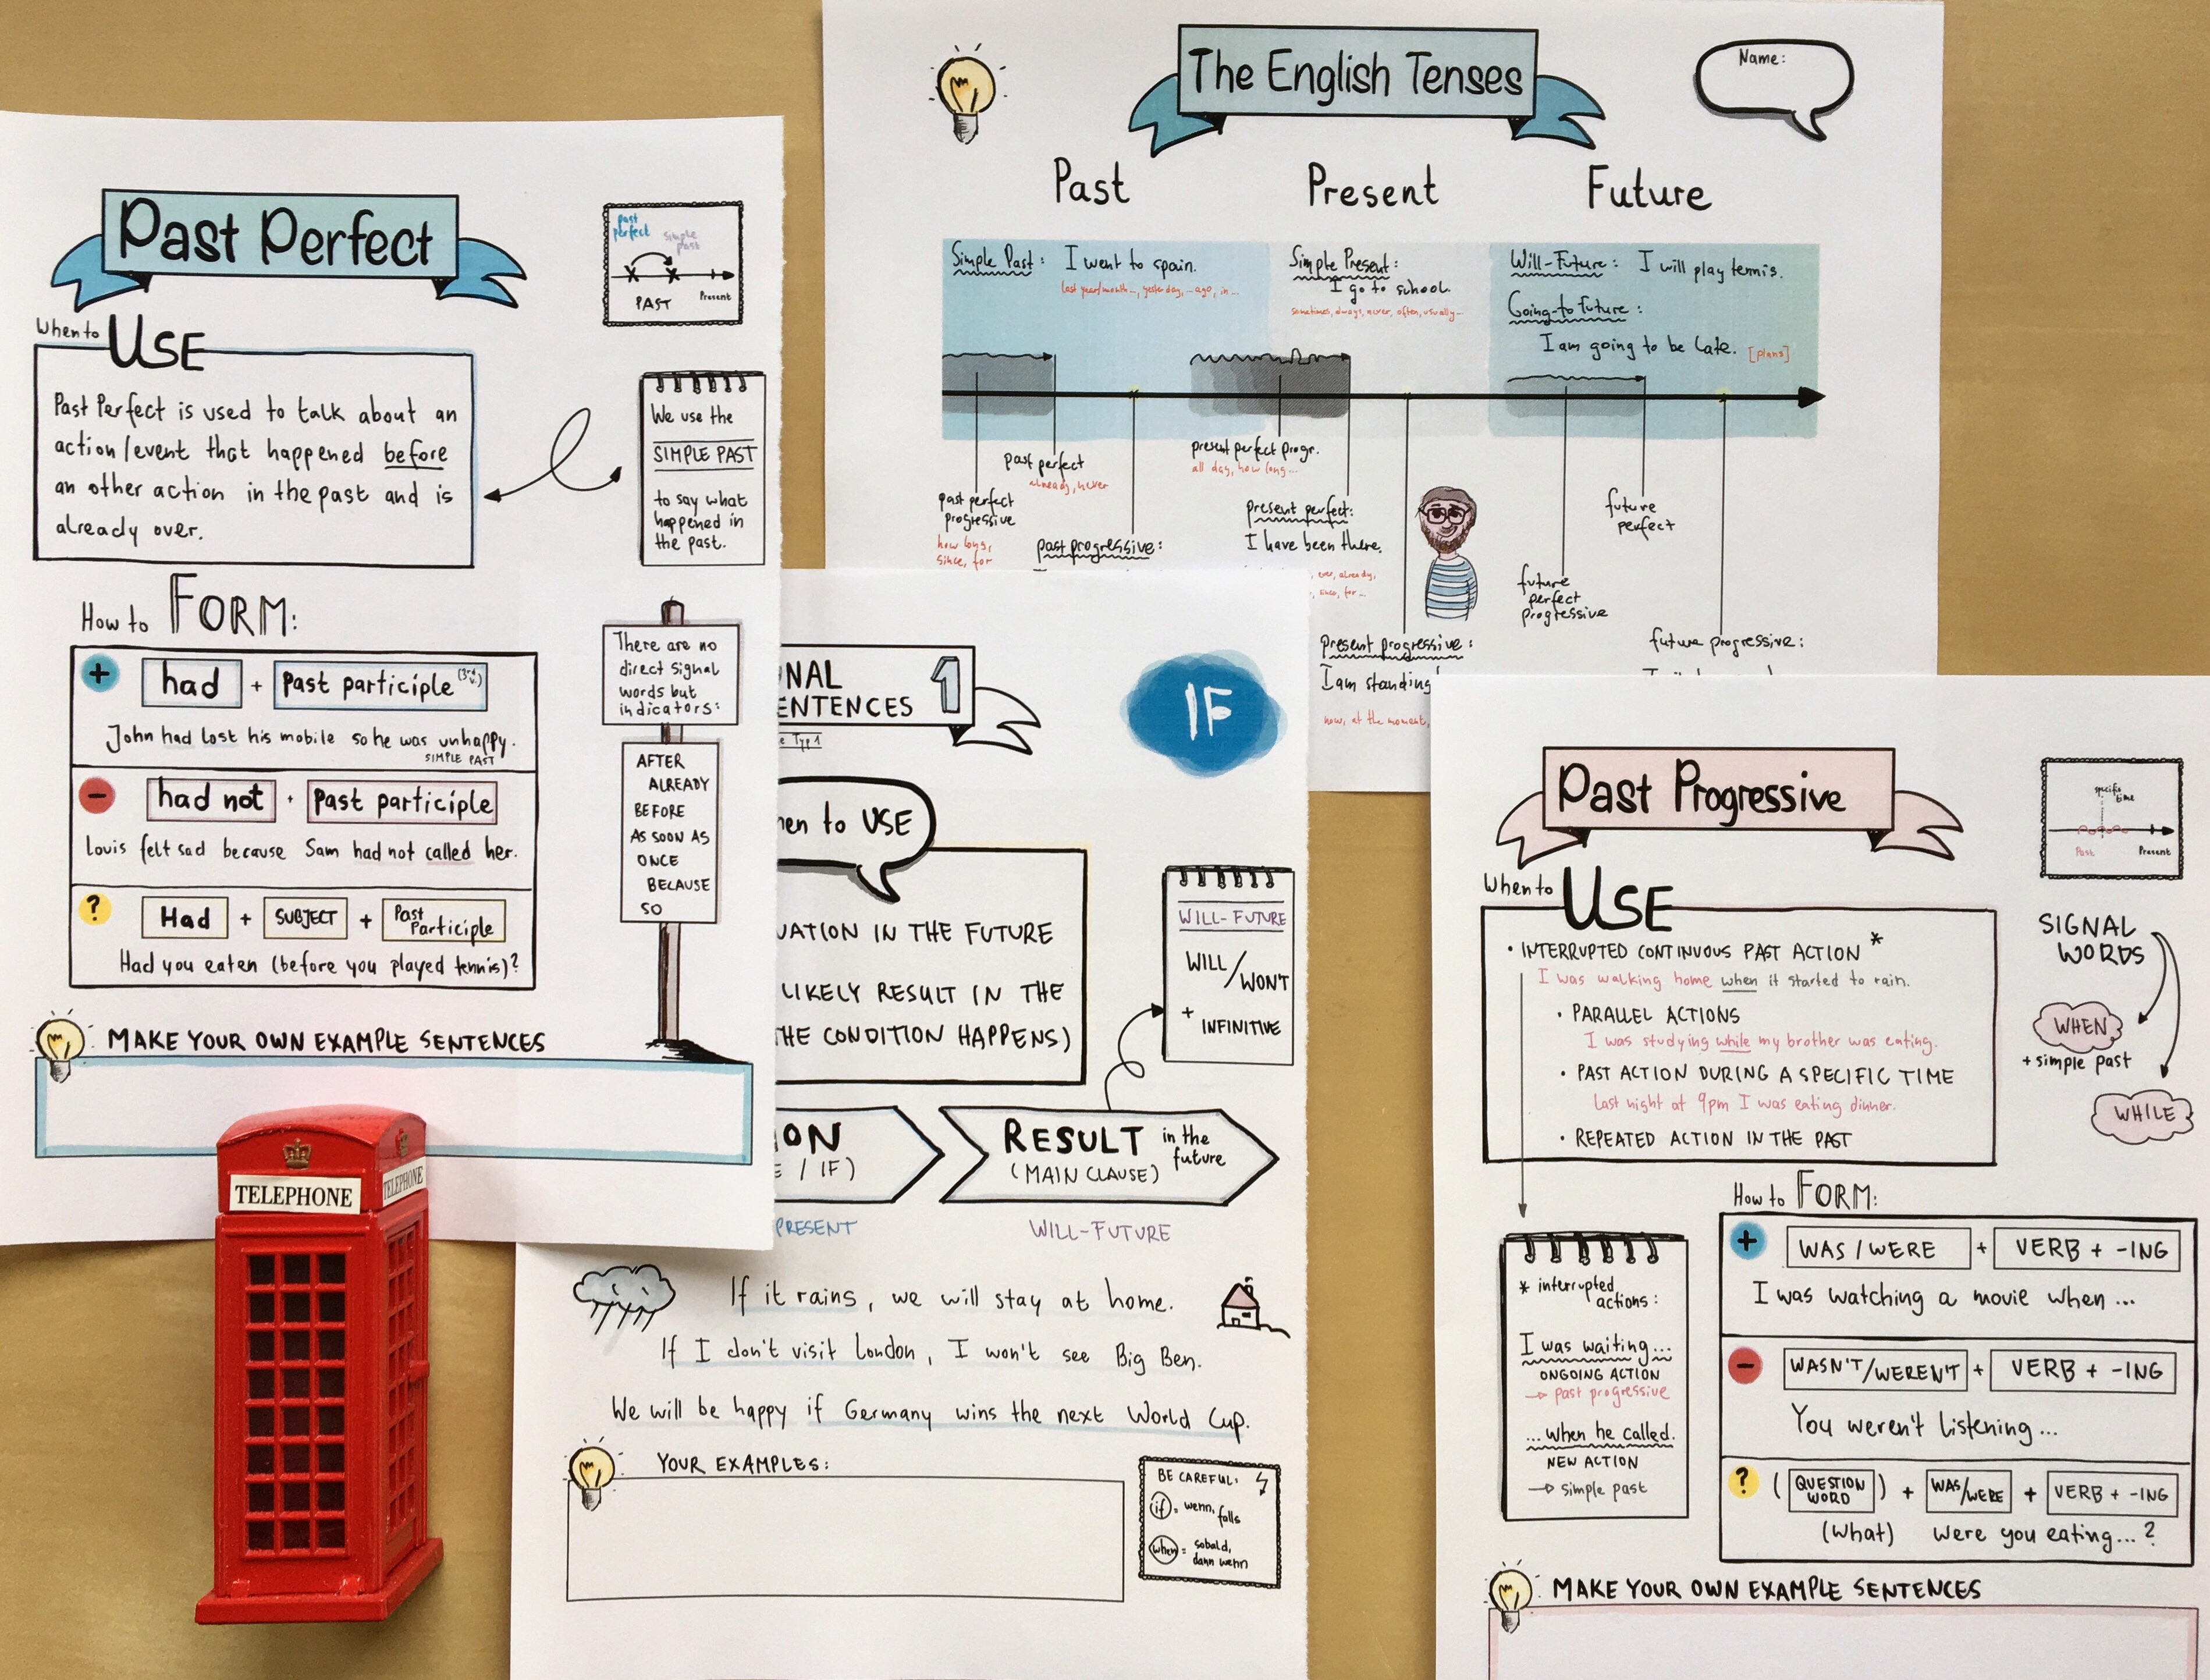 Past Perfect
past perfect
simple past
PAST
Present
When to USE
Past Perfect is used to talk about an
action/event that happened before
an other action in the past and is
already over.
We use the
SIMPLE PAST
to say what
happened in
the past.
How to FORM:
+ had + Past participle (3rd v.)
John had lost his mobile so he was unhappy.
SIMPLE PAST
- had not + Past participle
Louis felt sad because Sam had not called her.
? Had + SUBJECT + Past Participle
Had you eaten (before you played tennis)?
There are no
direct signal
words but
indicators:
AFTER
ALREADY
BEFORE
AS SOON AS
ONCE
BECAUSE
SO
MAKE YOUR OWN EXAMPLE SENTENCES
TELEPHONE
TELEPHONE
The English Tenses
Name:
Past
Present
Future
Simple Past: I went to spain.
last year/month..., yesterday, ...ago, in...
Simple Present:
I go to school.
sometimes, always, never, often, usually...
Will-Future: I will play tennis.
Going-to Future:
I am going to be late. [plans]
past perfect
already, never
past perfect
progressive
how long,
since, for
past progressive:
present perfect progr.
all day, how long...
present perfect:
I have been there.
ever, already,
since, for...
present progressive:
I am standing
now, at the moment,
future
perfect
future
perfect
progressive
future progressive:
NAL
ENTENCES 1
Typ 1
IF
en to USE
UATION IN THE FUTURE
LIKELY RESULT IN THE
THE CONDITION HAPPENS)
WILL-FUTURE
WILL/WON'T
+ INFINITIVE
ON
/ IF)
PRESENT
RESULT in the future
(MAIN CLAUSE)
WILL-FUTURE
If it rains, we will stay at home.
If I don't visit London, I won't see Big Ben.
We will be happy if Germany wins the next World Cup.
YOUR EXAMPLES:
BE CAREFUL:
if = wenn,
falls
when = sobald,
dann wenn
Past Progressive
specific time
Past
Present
When to USE
• INTERRUPTED CONTINUOUS PAST ACTION *
I was walking home when it started to rain.
• PARALLEL ACTIONS
I was studying while my brother was eating.
• PAST ACTION DURING A SPECIFIC TIME
Last night at 9pm I was eating dinner.
• REPEATED ACTION IN THE PAST
SIGNAL
WORDS
WHEN
+ simple past
WHILE
* interrupted
actions:
I was waiting...
ONGOING ACTION
→ past progressive
...when he called.
NEW ACTION
→ simple past
How to FORM:
+ WAS/WERE + VERB + -ING
I was watching a movie when ...
- WASN'T/WEREN'T + VERB + -ING
You weren't listening ...
? (QUESTION WORD) + WAS/WERE + VERB + -ING
(What) were you eating...?
MAKE YOUR OWN EXAMPLE SENTENCES